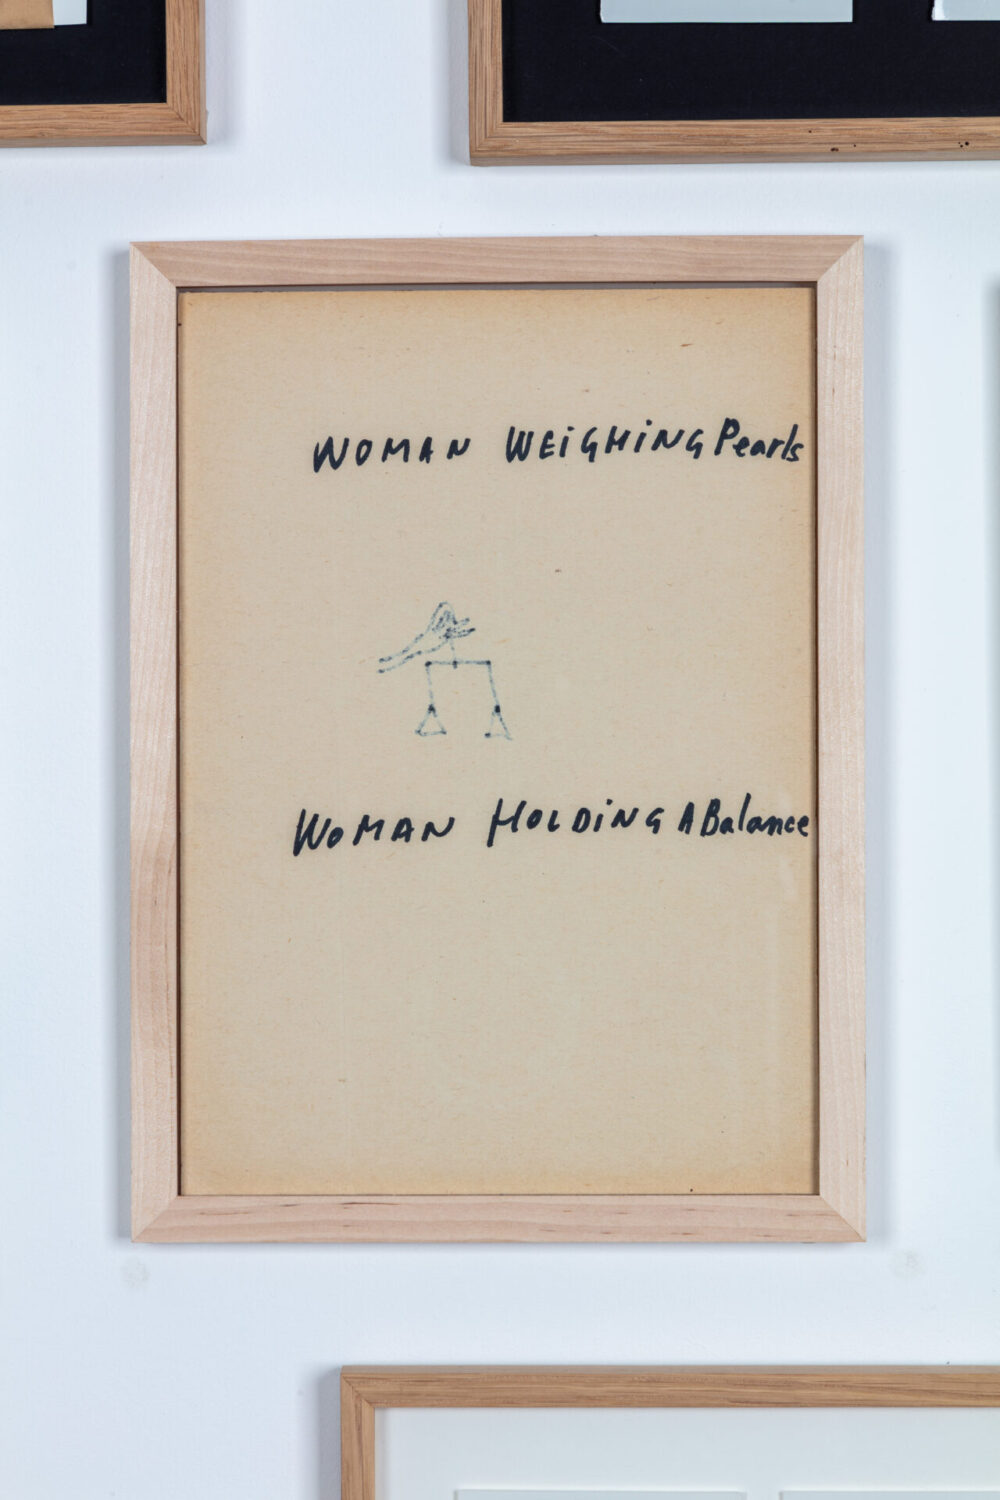 WOMAN WEiGHiNG Pearls
WOMAN HOLDiNG A Balance